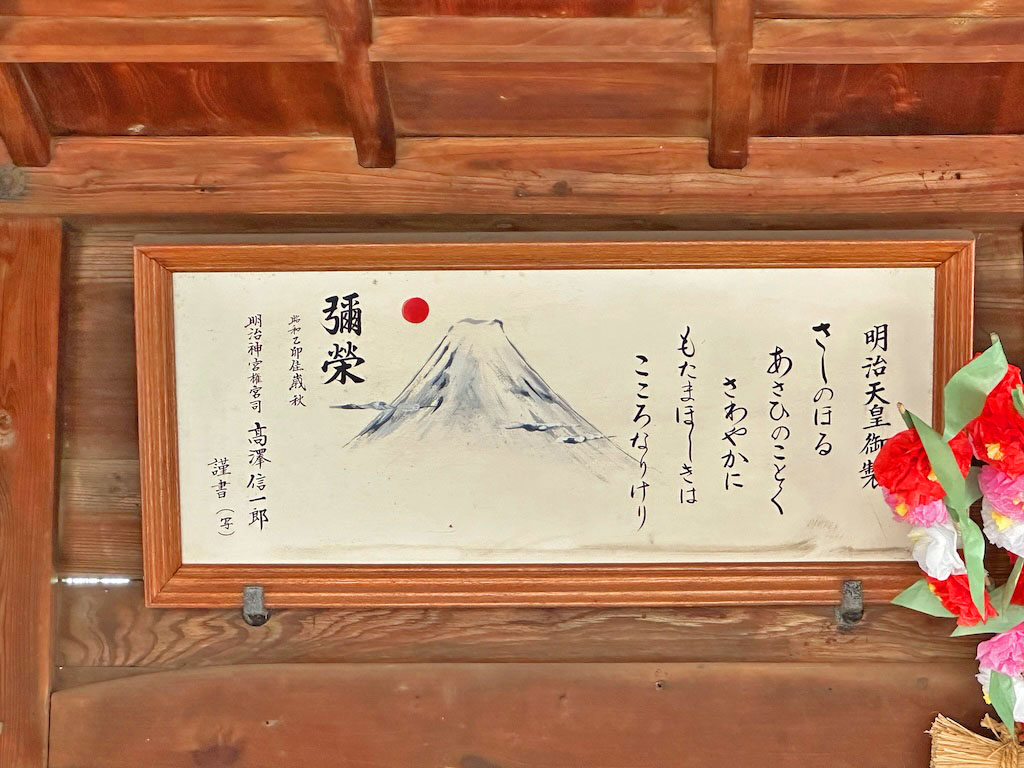 明治天皇御製
さしのほる
あさひのことく
さわやかに
もたまほしきは
こころなりけり
彌榮
昭和乙卯佳歳秋
明治神宮権宮司 高澤信一郎
謹書(写)